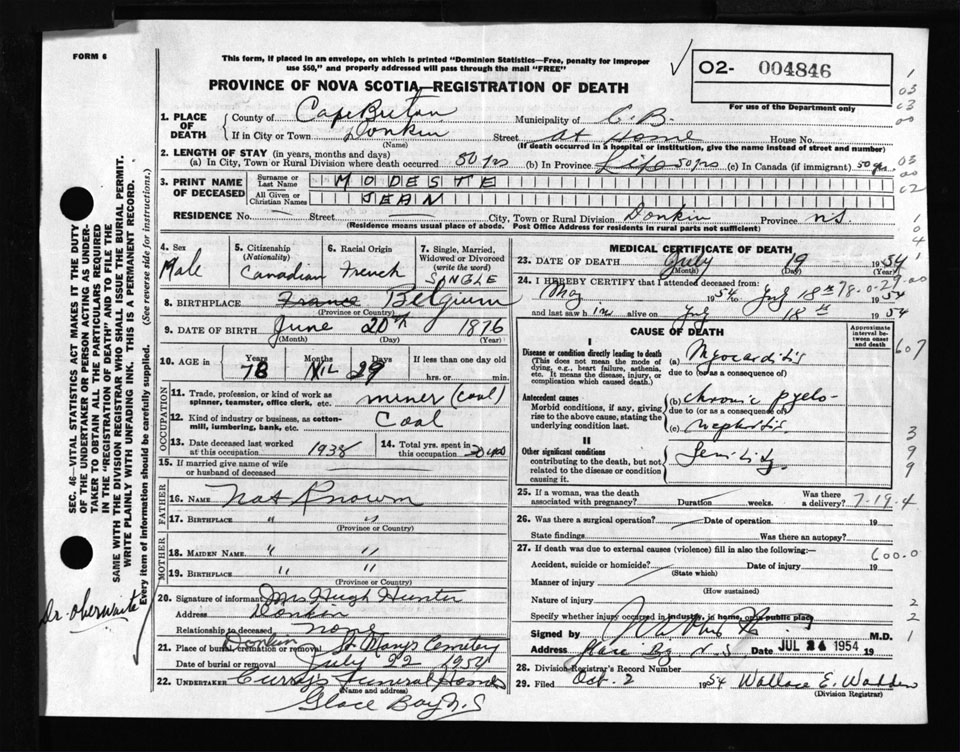 FORM 6
This form, if placed in an envelope, on which is printed "Dominion Statistics—Free, penalty for improper
use $50," and properly addressed will pass through the mail "FREE"
O2- 004846
For use of the Department only
PROVINCE OF NOVA SCOTIA—REGISTRATION OF DEATH
1. PLACE OF DEATH County of Cape Breton Municipality of C.B.
If in City or Town Donkin Street at Home House No.
(Name) (If death occurred in a hospital or institution, give the name instead of street and number)
2. LENGTH OF STAY (in years, months and days)
(a) In City, Town or Rural Division where death occurred 50 yrs (b) In Province Life 50 yrs (c) In Canada (if immigrant) 50 yrs.
3. PRINT NAME OF DECEASED Surname or Last Name MODESTE
All Given or Christian Names JEAN
RESIDENCE No. — Street — City, Town or Rural Division Donkin Province N.S.
(Residence means usual place of abode. Post Office Address for residents in rural parts not sufficient)
4. Sex Male
5. Citizenship (Nationality) Canadian
6. Racial Origin French
7. Single, Married, Widowed or Divorced (write the word) SINGLE
8. BIRTHPLACE France Belgium
(Province or Country)
9. DATE OF BIRTH June 20th 1876
(Month) (Day) (Year)
10. AGE in Years 78 Months NIL Days 29 If less than one day old
hrs. or min.
OCCUPATION
11. Trade, profession, or kind of work as spinner, teamster, office clerk, etc. miner (coal)
12. Kind of industry or business, as cotton-mill, lumbering, bank, etc. Coal
13. Date deceased last worked at this occupation 1938
14. Total yrs. spent in this occupation 30 yrs
15. If married give name of wife or husband of deceased
FATHER
16. NAME Not Known
17. BIRTHPLACE " "
(Province or Country)
MOTHER
18. MAIDEN NAME " "
19. BIRTHPLACE " "
(Province or Country)
20. Signature of informant Mrs Hugh Hunter
Address Donkin
Relationship to deceased none
21. Place of burial, cremation or removal Donkin St Mary's Cemetery
Date of burial or removal July 22 1954
22. UNDERTAKER Curry's Funeral Home
(Name and address)
Glace Bay N.S
MEDICAL CERTIFICATE OF DEATH
23. DATE OF DEATH July 19 1954
(Month) (Day) (Year)
24. I HEREBY CERTIFY that I attended deceased from:
May 1954 to July 18th 1954
78-0-29-00
and last saw him alive on July 18th 1954
CAUSE OF DEATH
Approximate interval between onset and death
I
Disease or condition directly leading to death (a) Myocarditis
(This does not mean the mode of dying, e.g., heart failure, asthenia, etc. It means the disease, injury, or complication which caused death.)
due to (or as a consequence of)
Antecedent causes (b) chronic pyelo-
Morbid conditions, if any, giving rise to the above cause, stating the underlying condition last.
due to (or as a consequence of)
(c) nephritis
II
Other significant conditions Senility
contributing to the death, but not related to the disease or condition causing it.
25. If a woman, was the death associated with pregnancy? Duration weeks. Was there a delivery?
7-19-4
26. Was there a surgical operation? Date of operation 19
State findings Was there an autopsy?
27. If death was due to external causes (violence) fill in also the following:
600.0
Accident, suicide or homicide? Date of injury 19
(State which)
Manner of injury
(How sustained)
Nature of injury
Specify whether injury occurred in industry, in home, or in public place
Signed by M.D.
Address Glace Bay N.S Date JUL 24 1954 19
28. Division Registrar's Record Number
29. Filed Oct. 2 1954 Wallace E. Wadden
(Division Registrar)
SEC. 46—VITAL STATISTICS ACT MAKES IT THE DUTY
OF THE UNDERTAKER OR PERSON ACTING AS UNDER-
TAKER TO OBTAIN ALL THE PARTICULARS REQUIRED
IN THE "REGISTRATION OF DEATH" AND TO FILE THE
SAME WITH THE DIVISION REGISTRAR WHO SHALL ISSUE THE BURIAL PERMIT.
WRITE PLAINLY WITH UNFADING INK. THIS IS A PERMANENT RECORD.
Every item of information should be carefully supplied. (See reverse side for instructions.)
607
3
9
9
2
2
1